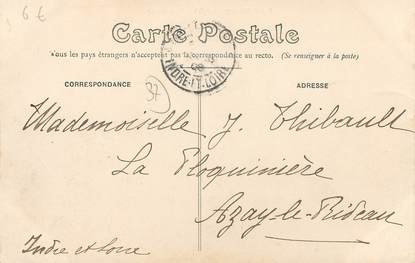 6 €
Carte Postale
Tous les pays étrangers n'acceptent pas la correspondance au recto. (Se renseigner à la poste)
INDRE-ET-LOIRE
CORRESPONDANCE
ADRESSE
37
Mademoiselle J. Thibault
La Eloquinière
Azay-le-Rideau
Indre et Loire